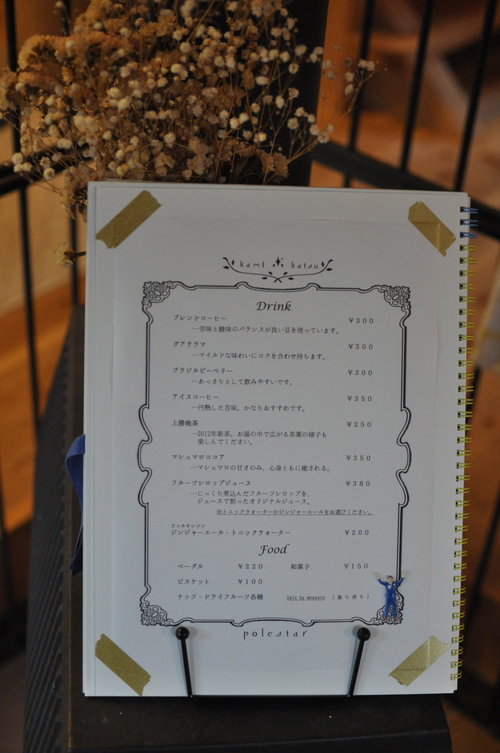 kami katsu
Drink
ブレンドコーヒー ￥300
…苦味と酸味のバランスが良い豆を使っています。
グアテラマ ￥300
…マイルドな味わいにコクを合わせ持ちます。
ブラジルピーベリー ￥300
…あっさりとして飲みやすいです。
アイスコーヒー ￥350
…円熟した苦味。かなりおすすめです。
上勝晩茶 ￥250
…2012年新茶。お湯の中で広がる茶葉の様子も
楽しんでください。
マシュマロココア ￥350
…マシュマロの甘さのみ。心身ともに癒される。
フルーツシロップジュース ￥380
…じっくり煮込んだフルーツシロップを、
ジュースで割ったオリジナルジュース。
※トニックウォーターかジンジャーエールをお選びください。
ウィルキンソン
ジンジャーエール・トニックウォーター ￥200
Food
ベーグル ￥220 和菓子 ￥150
ビスケット ￥100
ナッツ・ドライフルーツ各種 Sale by measure （量り売り）
polestar